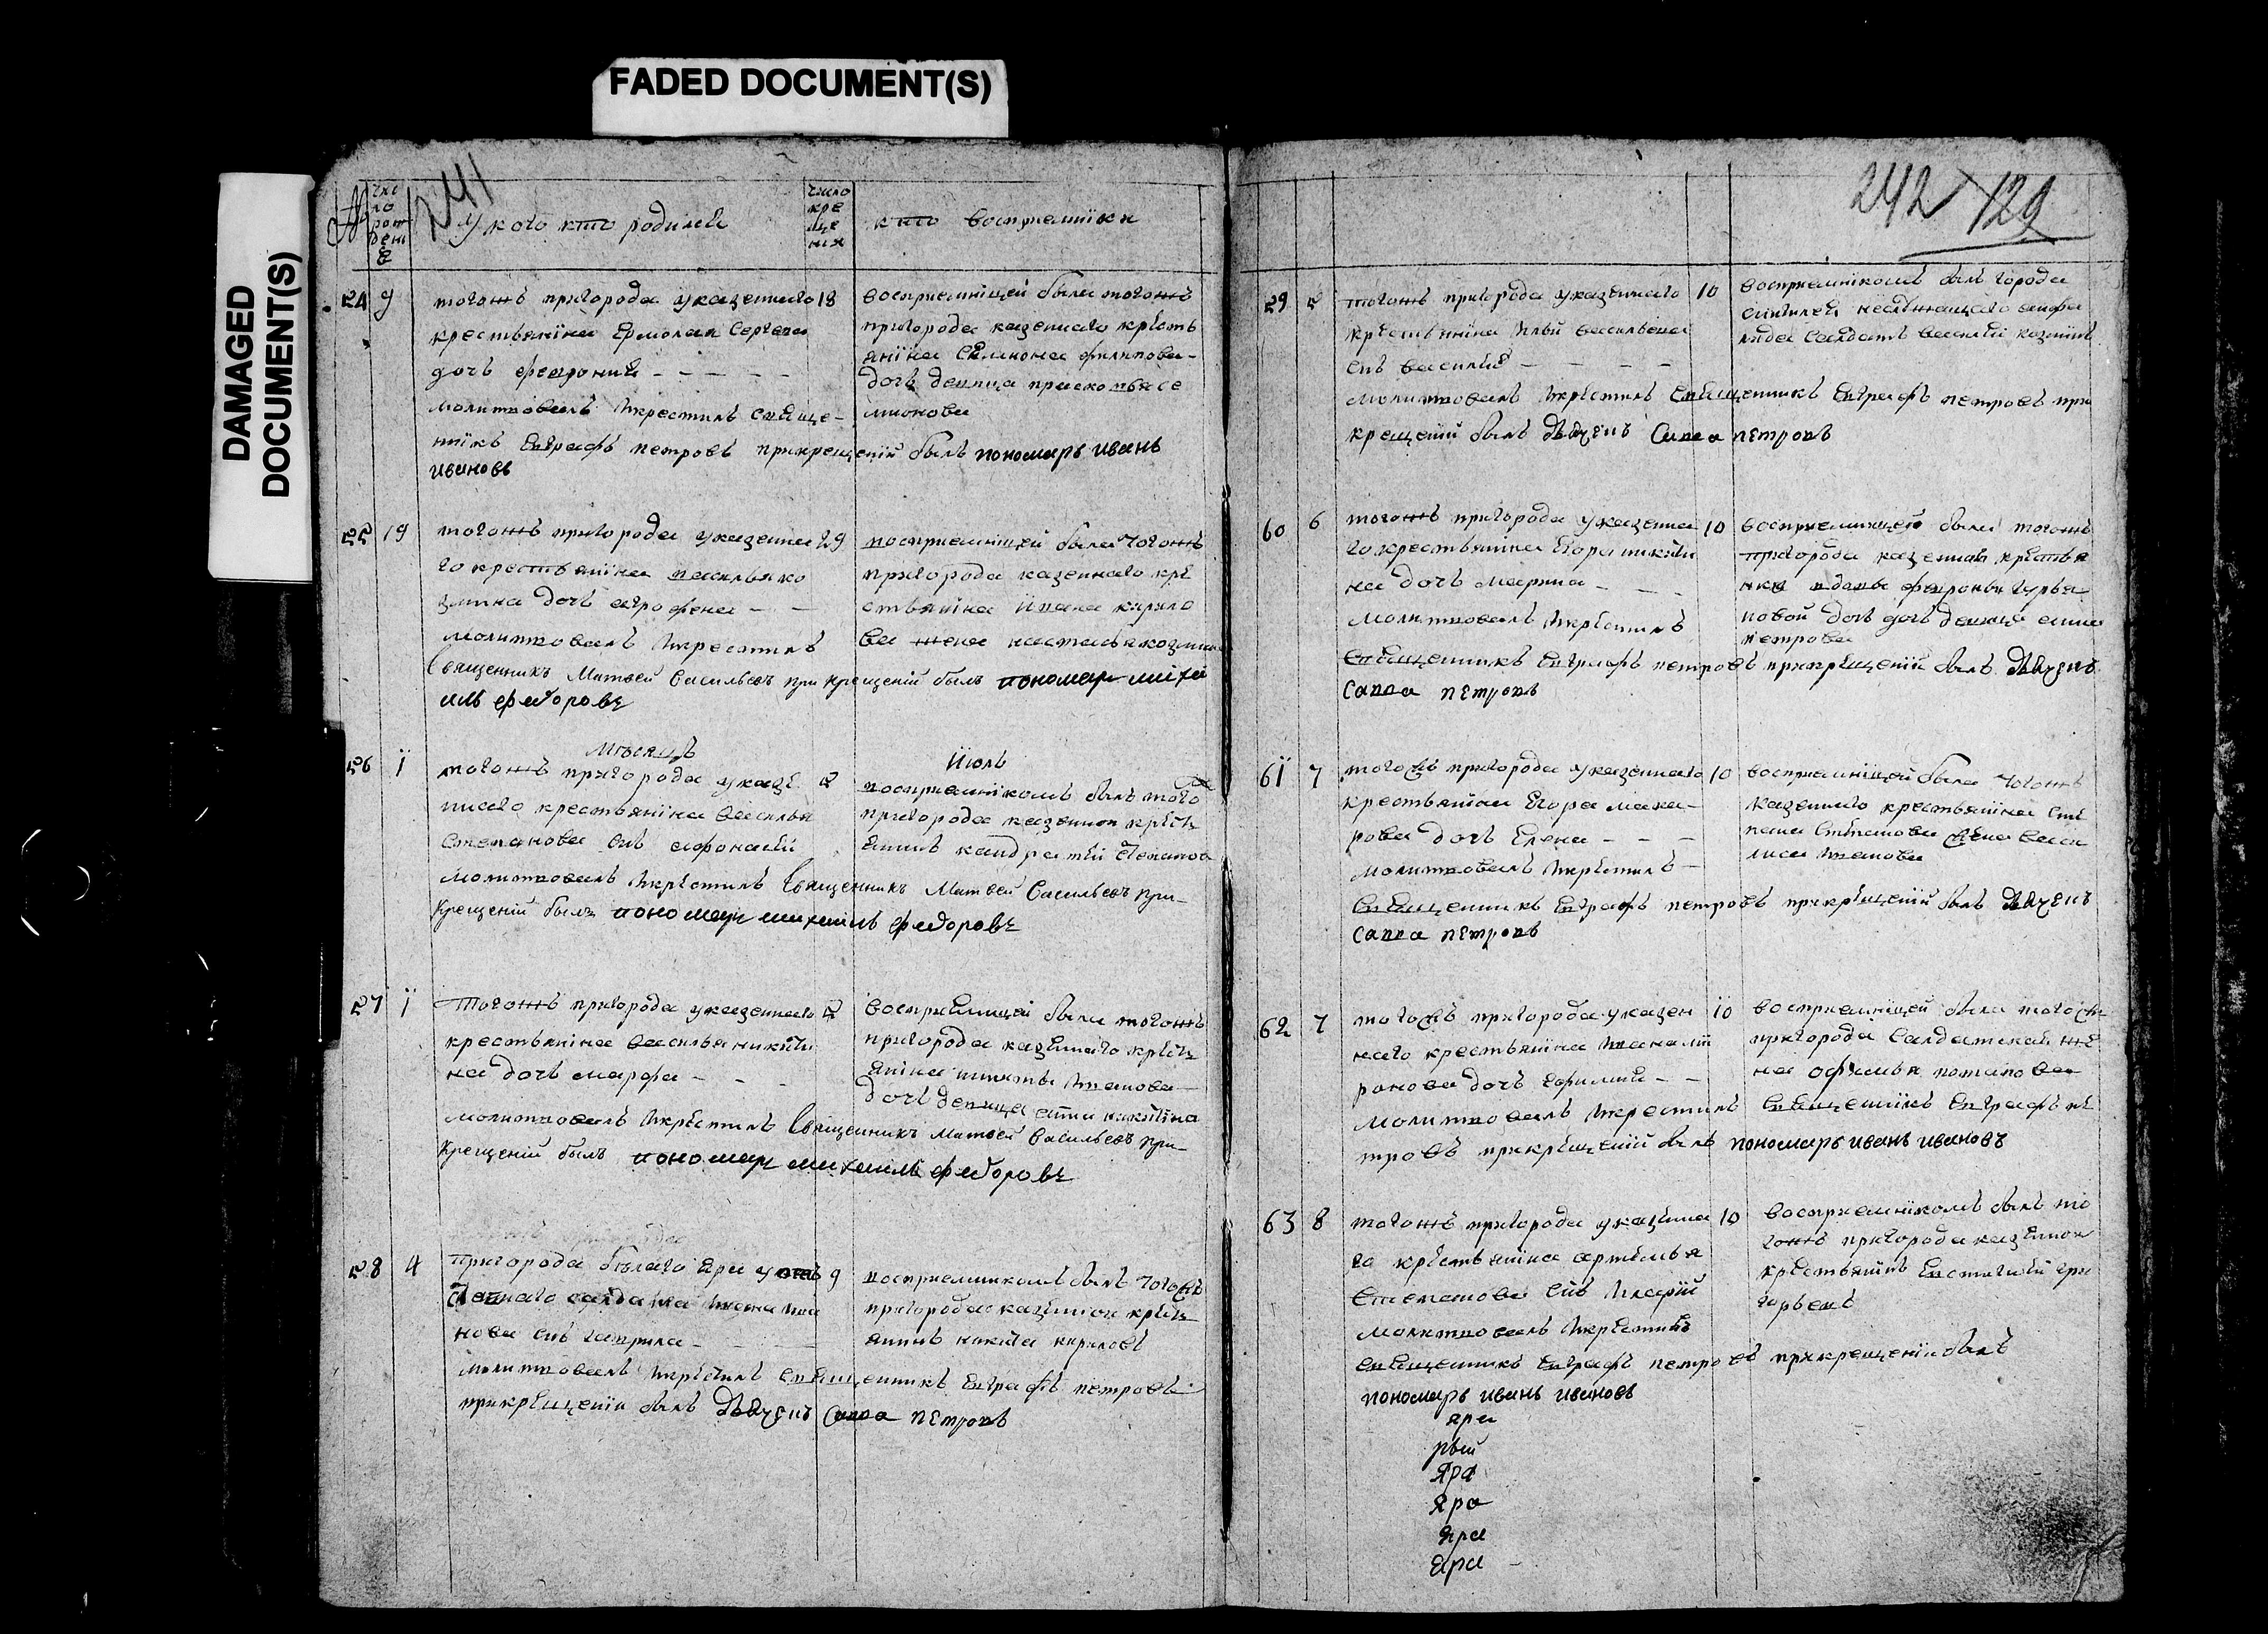 FADED DOCUMENT(S)
DAMAGED
DOCUMENT(S)
241
№
число рождения
У кого кто родился
число крещения
кто восприемники
54 9
тогожъ пригорода указеннаго 18
крестьянина Ермолая Сергеева
дочь феврония - - - -
молитвовалъ икрестилъ свяще-
нникъ Евграфъ петровъ прикрещении былъ пономарь иванъ
ивановъ
восприемницей была тогожъ
пригорода казеннаго кресть
янина Симиона филипова-
дочь девица прасковья се
мионова
55 19
тогожъ пригорода указенна 29
го крестьянина васильи ко
змина дочь агрофена - -
молитвовалъ икрестилъ
Священникъ Матвей Васильевъ при крещении былъ пономарь михаи
илъ федоровъ
восприемницей была тогожъ
пригорода казеннаго кре
стьянина ивана кирило
ва жена настасья козмина
Месяцъ Июль
56 1
тогожъ пригорода указе 5
ннаго крестьянина василья
степанова сынъ афонасий
молитвовалъ икрестилъ Священникъ Матвей Васильевъ при-
крещении былъ пономарь михаилъ федоровъ
восприемникомъ былъ того
пригорода казенной кресть
янинъ кандратий степанов
57 1
Тогожъ пригорода указеннаго 5
крестьянина василья никити
на дочь марфа - - -
молитвовалъ икрестилъ Священникъ Матвей Васильевъ при-
крещении былъ пономарь михаилъ федоровъ
восприемницей была тогожъ
пригорода казеннаго кресть
янина никиты иванова-
дочь девица анна никитина
58 4
Пригорода белаго яра у 9
солдата ивана ива
нова сынъ гаврила - - -
молитвовалъ икрестилъ священникъ Евграфъ петровъ
прикрещении былъ дьячекъ Савва петровъ
восприемникомъ былъ тогожъ
пригорода казенной кресть
янинъ никита кириловъ
242 129
59 5
тогожъ пригорода указеннаго 10
крестьянина ильи васильева
сынъ василий - - - -
молитвовалъ икрестилъ священникъ Евграфъ петровъ при
крещении былъ дьячекъ Савва петровъ
восприемникомъ былъ города
солдатъ василий козминъ
60 6
тогожъ пригорода указенна 10
го крестьянина Егора никити
на дочь марина - - -
молитвовалъ икрестилъ
священникъ Евграфъ петровъ прикрещении былъ дьячекъ
Савва петровъ
восприемницей была тогожъ
пригорода казенной крестья
нки вдовы февроньи гурья
новой дочь девица анна
петрова
61 7
тогожъ пригорода указеннаго 10
крестьянина Егора мака-
рова дочь Елена - - -
молитвовалъ икрестилъ -
священникъ Евграфъ петровъ прикрещении былъ дьячекъ
Савва петровъ
восприемницей была тогожъ
казеннаго крестьянина сте
пана степанова жена васи
лиса иванова
62 7
тогожъ пригорода указен 10
наго крестьянина ивана ми
ронова дочь Ефимия - -
молитвовалъ икрестилъ священникъ Евграфъ пе
тровъ прикрещении былъ пономарь иванъ ивановъ
восприемницей была тогожъ
пригорода Салдатская же
на офимья потапова
63 8
тогожъ пригорода указенна 10
го крестьянина артемья
степанова сынъ иларий
молитвовалъ икрестилъ
священникъ Евграфъ петровъ прикрещении былъ
пономарь иванъ ивановъ
восприемникомъ былъ то
гожъ пригорода казенной
крестьянинъ Евстигней гри
горьевъ
яра
рый
Яра
Яра
яра
яра